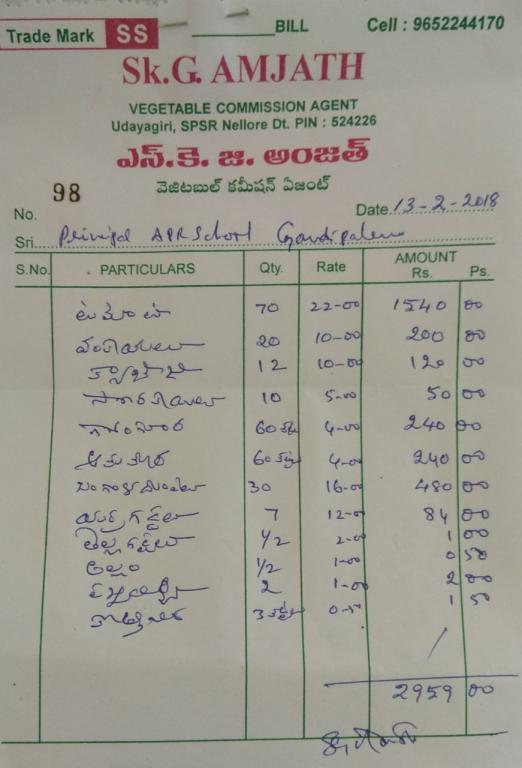 BILL Cell : 9652244170
Trade Mark SS
Sk.G. AMJATH
VEGETABLE COMMISSION AGENT
Udayagiri, SPSR Nellore Dt. PIN : 524226
ఎస్.కె. జి. అంజత్
వెజిటబుల్ కమీషన్ ఏజంట్
98
No. Date 13-2-2018
Sri Principal APRSchool Gandipalem
S.No. PARTICULARS Qty. Rate AMOUNT Rs. Ps.
టమోటా 70 22-00 1540 00
వంకాయలు 20 10-00 200 00
12 10-00 120 00
10 5-00 50 00
గోంగూర 60 4-00 240 00
ఆకుకూర 60 4-00 240 00
బంగాళదుంపలు 30 16-00 480 00
యర్రగడ్డలు 7 12-00 84 00
తెల్లగడ్డలు 1/2 2-00 1 00
అల్లం 1/2 1-00 0 50
2 1-00 2 00
3 0-50 1 50
2959 00